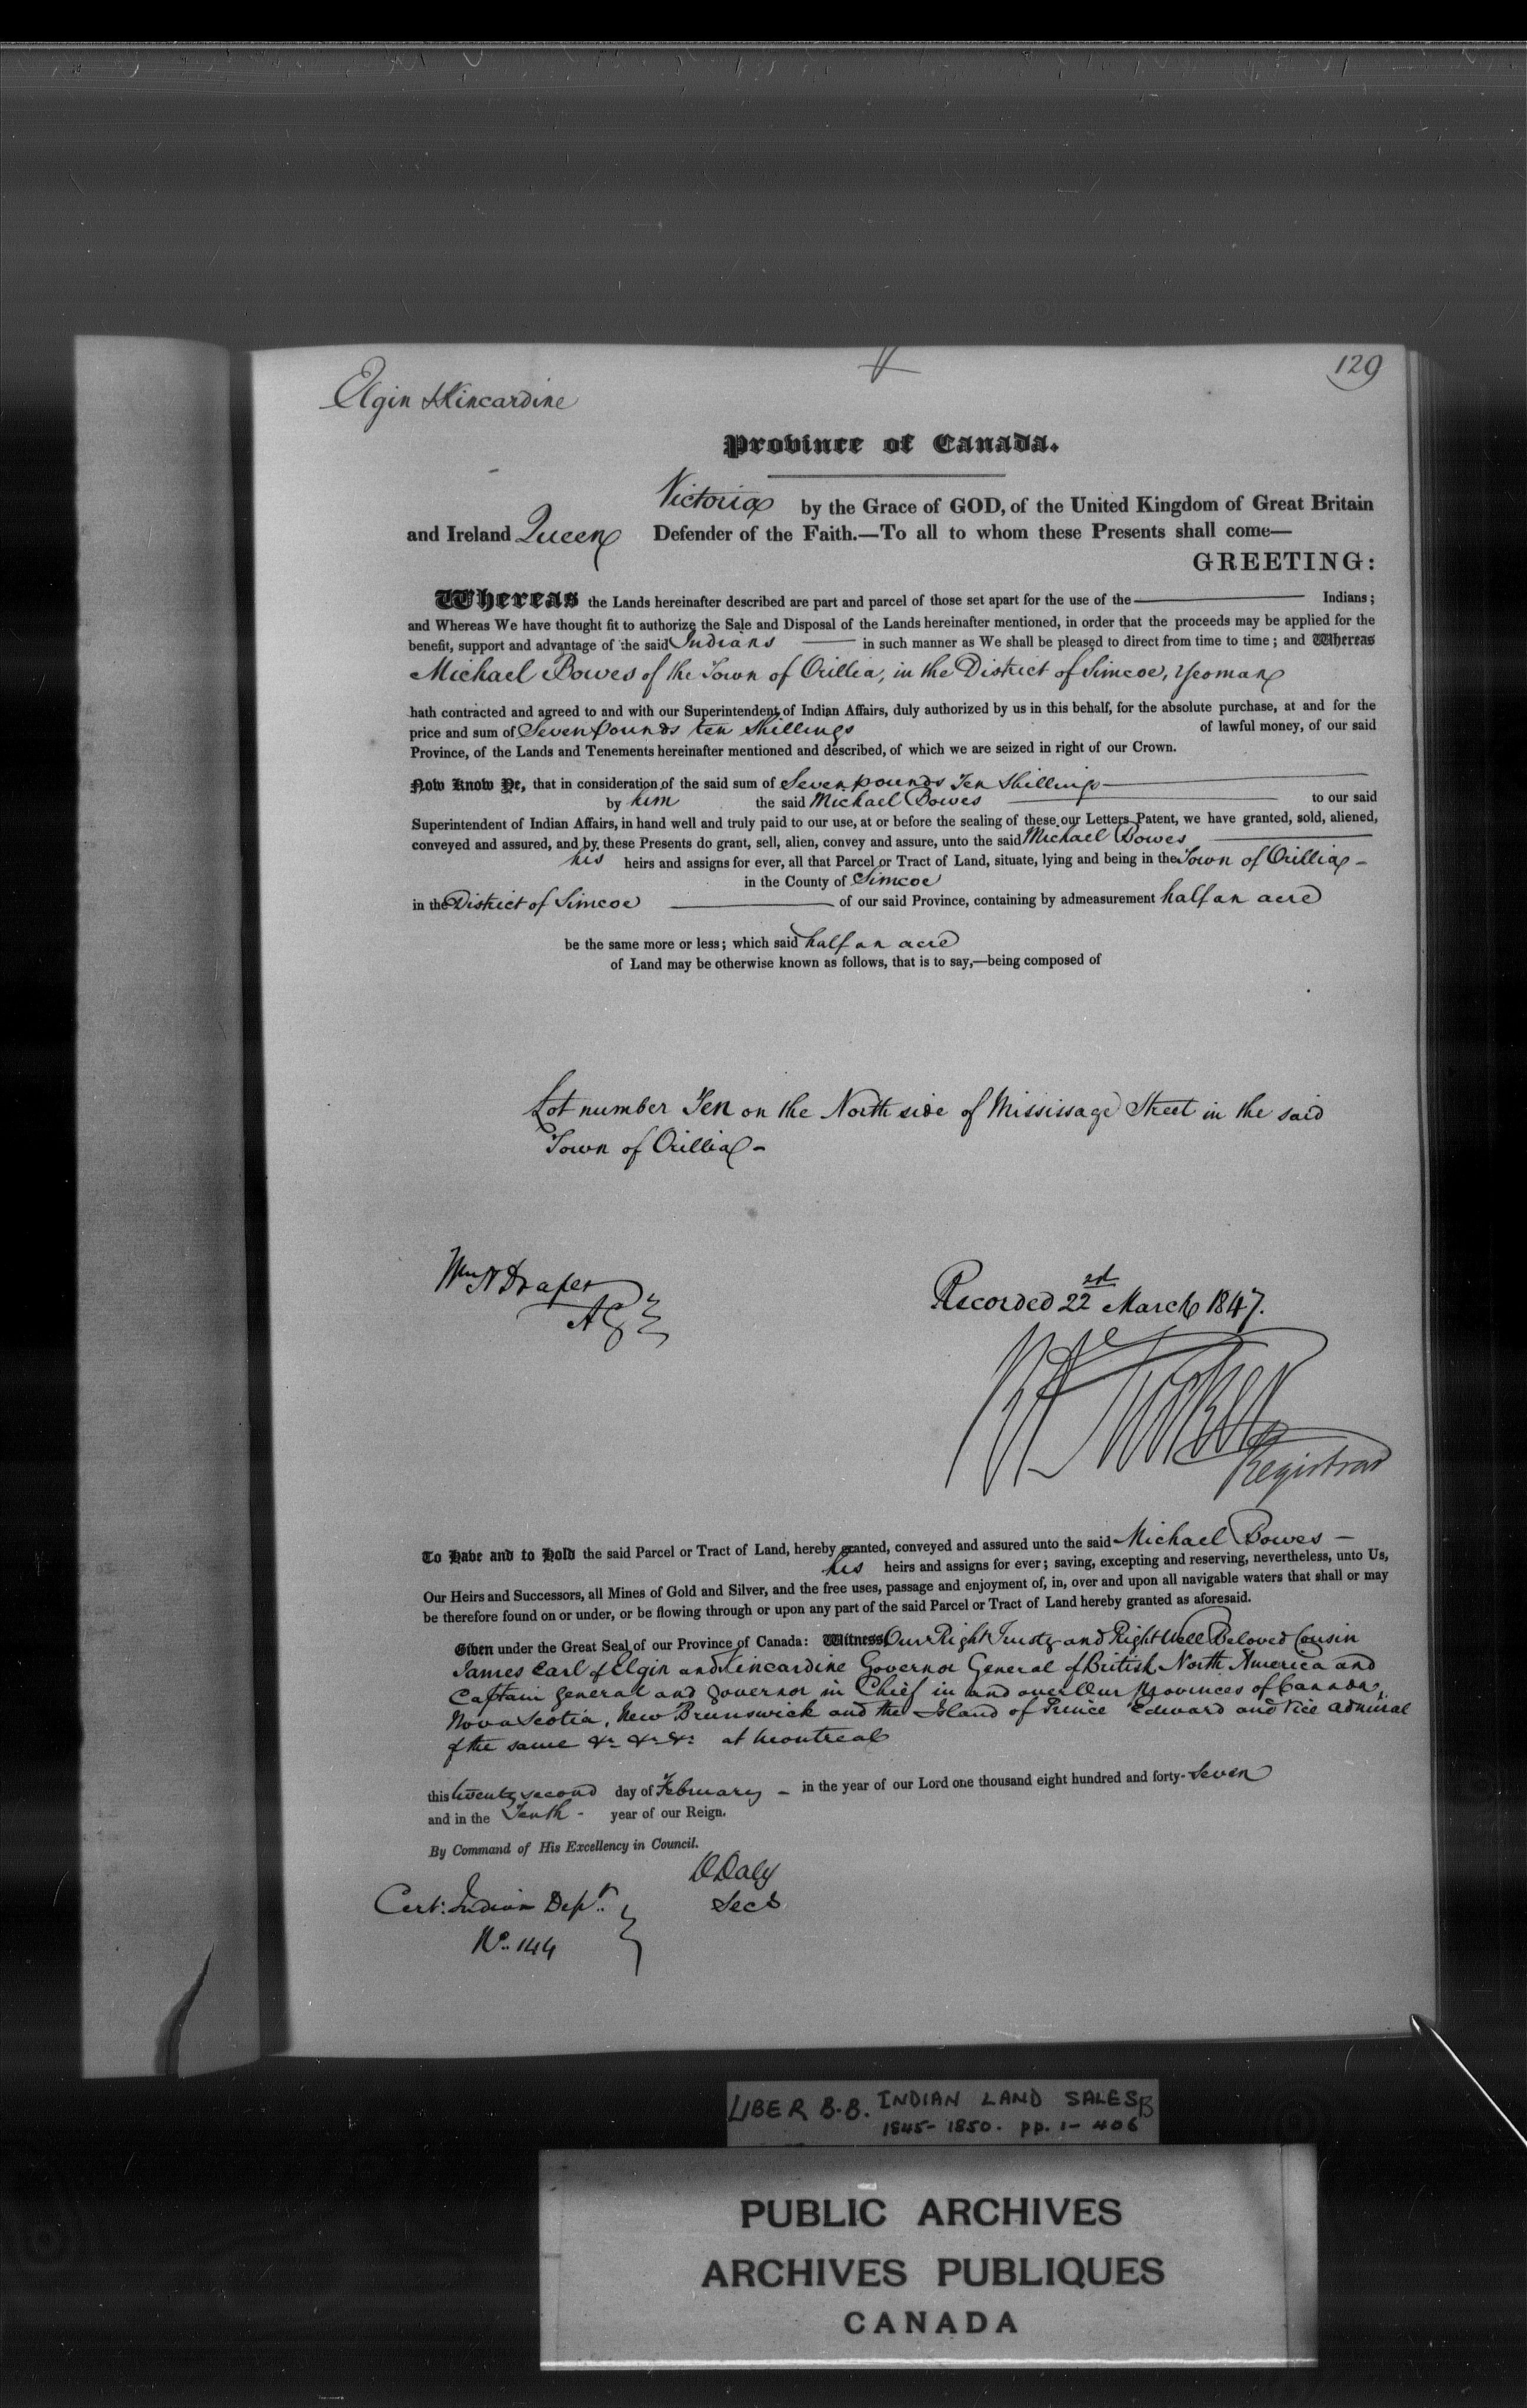 129
Elgin & Kincardine
Province of Canada.
Victoria by the Grace of GOD, of the United Kingdom of Great Britain
and Ireland Queen Defender of the Faith.—To all to whom these Presents shall come—
GREETING:
Whereas the Lands hereinafter described are part and parcel of those set apart for the use of the Indians;
and Whereas We have thought fit to authorize the Sale and Disposal of the Lands hereinafter mentioned, in order that the proceeds may be applied for the
benefit, support and advantage of the said Indians in such manner as We shall be pleased to direct from time to time; and Whereas
Michael Bowes of the Town of Orillia, in the District of Simcoe, Yeoman
hath contracted and agreed to and with our Superintendent of Indian Affairs, duly authorized by us in this behalf, for the absolute purchase, at and for the
price and sum of Seven pounds ten shillings of lawful money, of our said
Province, of the Lands and Tenements hereinafter mentioned and described, of which we are seized in right of our Crown.
Now Know Ye, that in consideration of the said sum of Seven pounds Ten Shillings
by him the said Michael Bowes to our said
Superintendent of Indian Affairs, in hand well and truly paid to our use, at or before the sealing of these our Letters Patent, we have granted, sold, aliened,
conveyed and assured, and by these Presents do grant, sell, alien, convey and assure, unto the said Michael Bowes
his heirs and assigns for ever, all that Parcel or Tract of Land, situate, lying and being in the Town of Orillia -
in the County of Simcoe
in the District of Simcoe of our said Province, containing by admeasurement half an acre
be the same more or less; which said half an acre
of Land may be otherwise known as follows, that is to say,—being composed of
Lot number Ten on the North side of Mississaga Street in the said
Town of Orillia -
Wm H Draper
AG
Recorded 22nd March 1847.
RA Tucker
Registrar
To Have and to Hold the said Parcel or Tract of Land, hereby granted, conveyed and assured unto the said Michael Bowes -
his heirs and assigns for ever; saving, excepting and reserving, nevertheless, unto Us,
Our Heirs and Successors, all Mines of Gold and Silver, and the free uses, passage and enjoyment of, in, over and upon all navigable waters that shall or may
be therefore found on or under, or be flowing through or upon any part of the said Parcel or Tract of Land hereby granted as aforesaid.
Given under the Great Seal of our Province of Canada: Witness, Our Right Trusty and Right Well Beloved Cousin
James Earl of Elgin and Kincardine Governor General of British North America and
Captain General and Governor in Chief in and over Our Provinces of Canada,
Nova Scotia, New Brunswick and the Island of Prince Edward and Vice Admiral
of the same &c &c &c at Montreal
this twenty second day of February - in the year of our Lord one thousand eight hundred and forty-seven
and in the Tenth - year of our Reign.
By Command of His Excellency in Council.
D Daly
Secy
Cert: Indian Dept.
No. 144
LIBER B.B. INDIAN LAND SALES B
1845-1850. pp. 1-406
PUBLIC ARCHIVES
ARCHIVES PUBLIQUES
CANADA